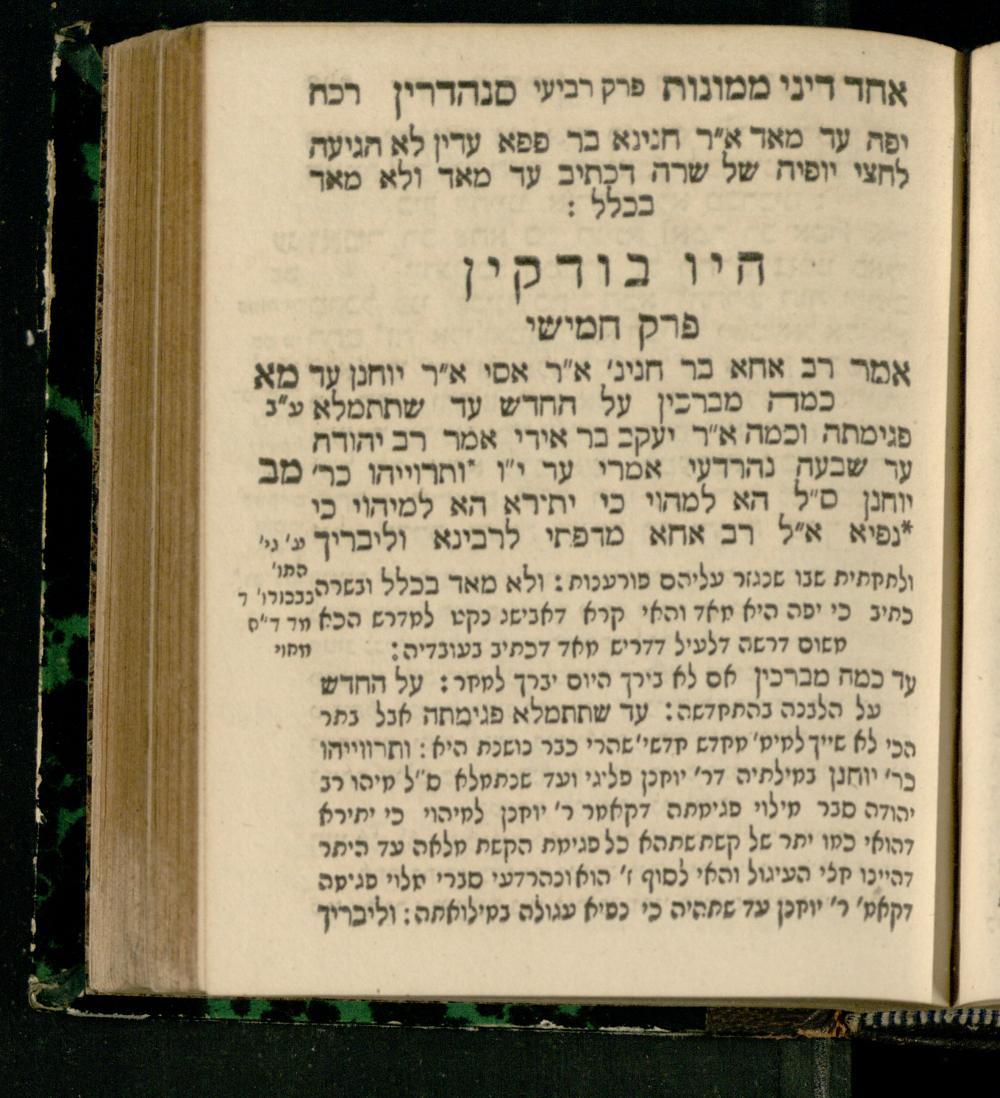 אחד דיני ממונות פרק רביעי סנהדרין רכח
יפה עד מאד א״ר חנינא בר פפא עדין לא הגיעה
לחצי יופיה של שרה דכתיב עד מאד ולא מאד
בכלל :
היו בודקין
פרק חמישי
אמר רב אחא בר חנינ׳ א״ר אסי א״ר יוחנן עד מא
כמה מברכין על החדש עד שתתמלא ע״ב
פגימתה וכמה א״ר יעקב בר אידי אמר רב יהודה
עד שבעה נהרדעי אמרי עד י״ו ותרוייהו כר׳ מב
יוחנן ס״ל הא למהוי כי יתירא הא למיהוי כי
*נפיא א״ל רב אחא מדפתי לרבינא וליבריך
ע׳ גי׳
התו׳
בבכורו׳ ד
מד ד״ה
מחוי
ולתקתית שבו שנגזר עליהם פורענות : ולא מאד בכלל ובשרה
כתיב כי יפה היא מאד והאי קרא דאבישג נקט למדרש הכא
משום דרשה דלעיל דדריש מאד דכתיב בעובדיה :
עד כמה מברכין אם לא בירך היום יברך למחר : על החדש
על הלבנה בהתקדשה : עד שתתמלא פגימתה אבל בתר
הכי לא שייך למימ׳ מקדש חדשי׳ שהרי כבר נושנת היא : ותרווייהו
כר׳ יוחנן במילתיה דר׳ יוחנן פליגי ועד שנתמלא ס״ל מיהו רב
יהודה סבר מילוי פגימתה דקאמר ר׳ יוחנן למיהוי כי יתירא
דהואי כמו יתר של קשת שתהא כל פגימת הקשת מלאה עד היתר
דהיינו חצי העיגול והאי לסוף ז׳ הוא ונהרדעי סברי מלוי פגימה
דקאמ׳ ר׳ יוחנן עד שתהיה כי נפיא עגולה במילואתה : וליבריך